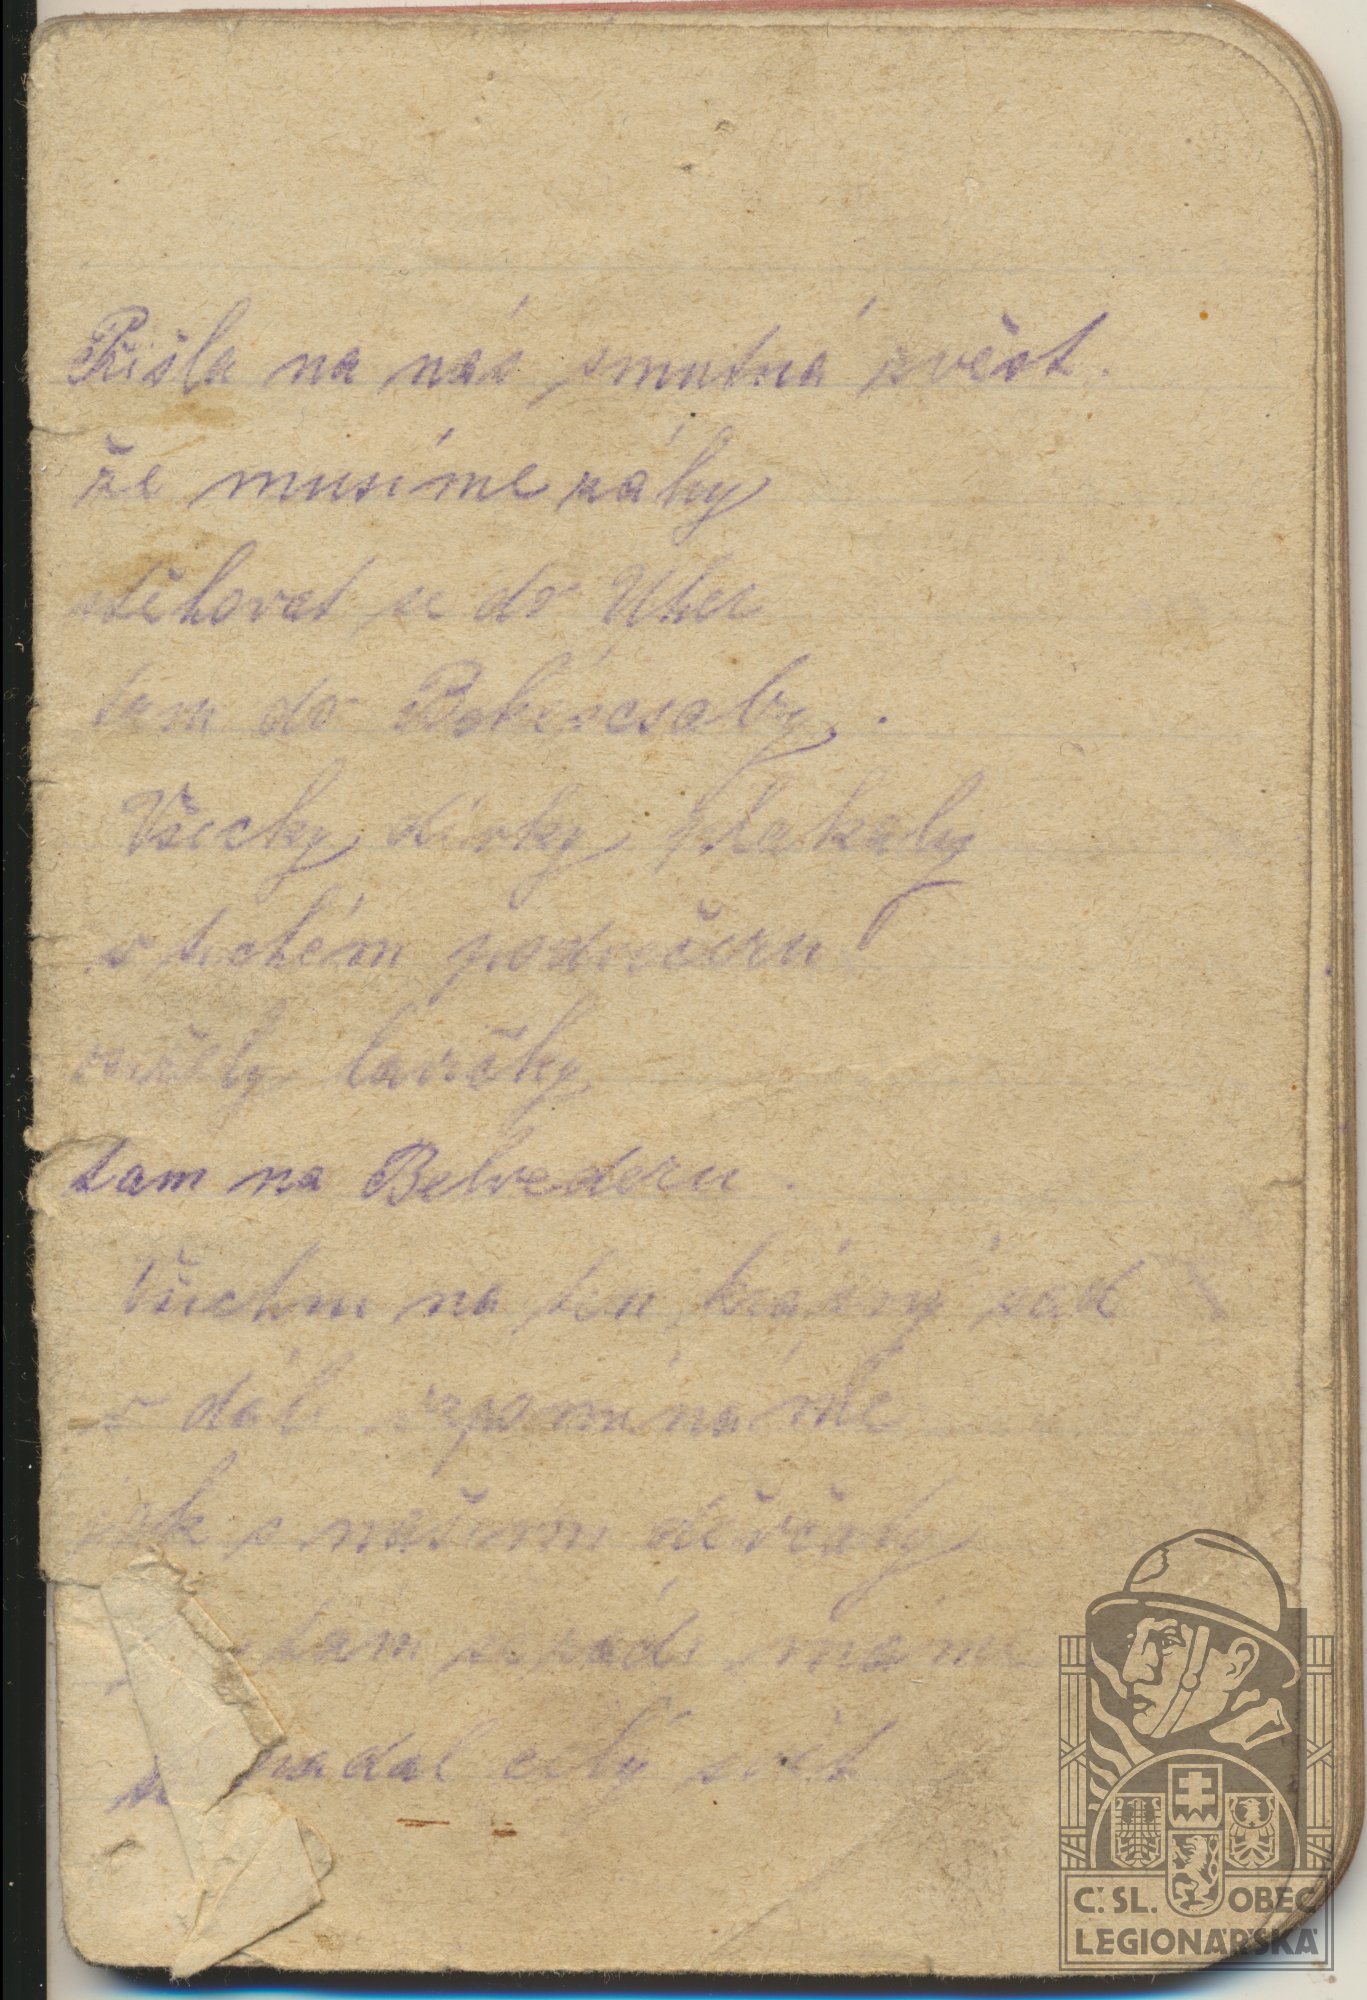 Přišla na nás smutná zvěst.
že musíme záhy
stěhovat se do Uher
tam do Bekéscsaby.
Všecky dívky plakaly
v tichém podvečeru
vršely lavičky
tam na Belvederu.
Všichni na ten krásný sad
v dáli vzpomínáme
jak s našimi děvčaty
tam
celý svět
Č.SL. OBEC
LEGIONÁŘSKÁ